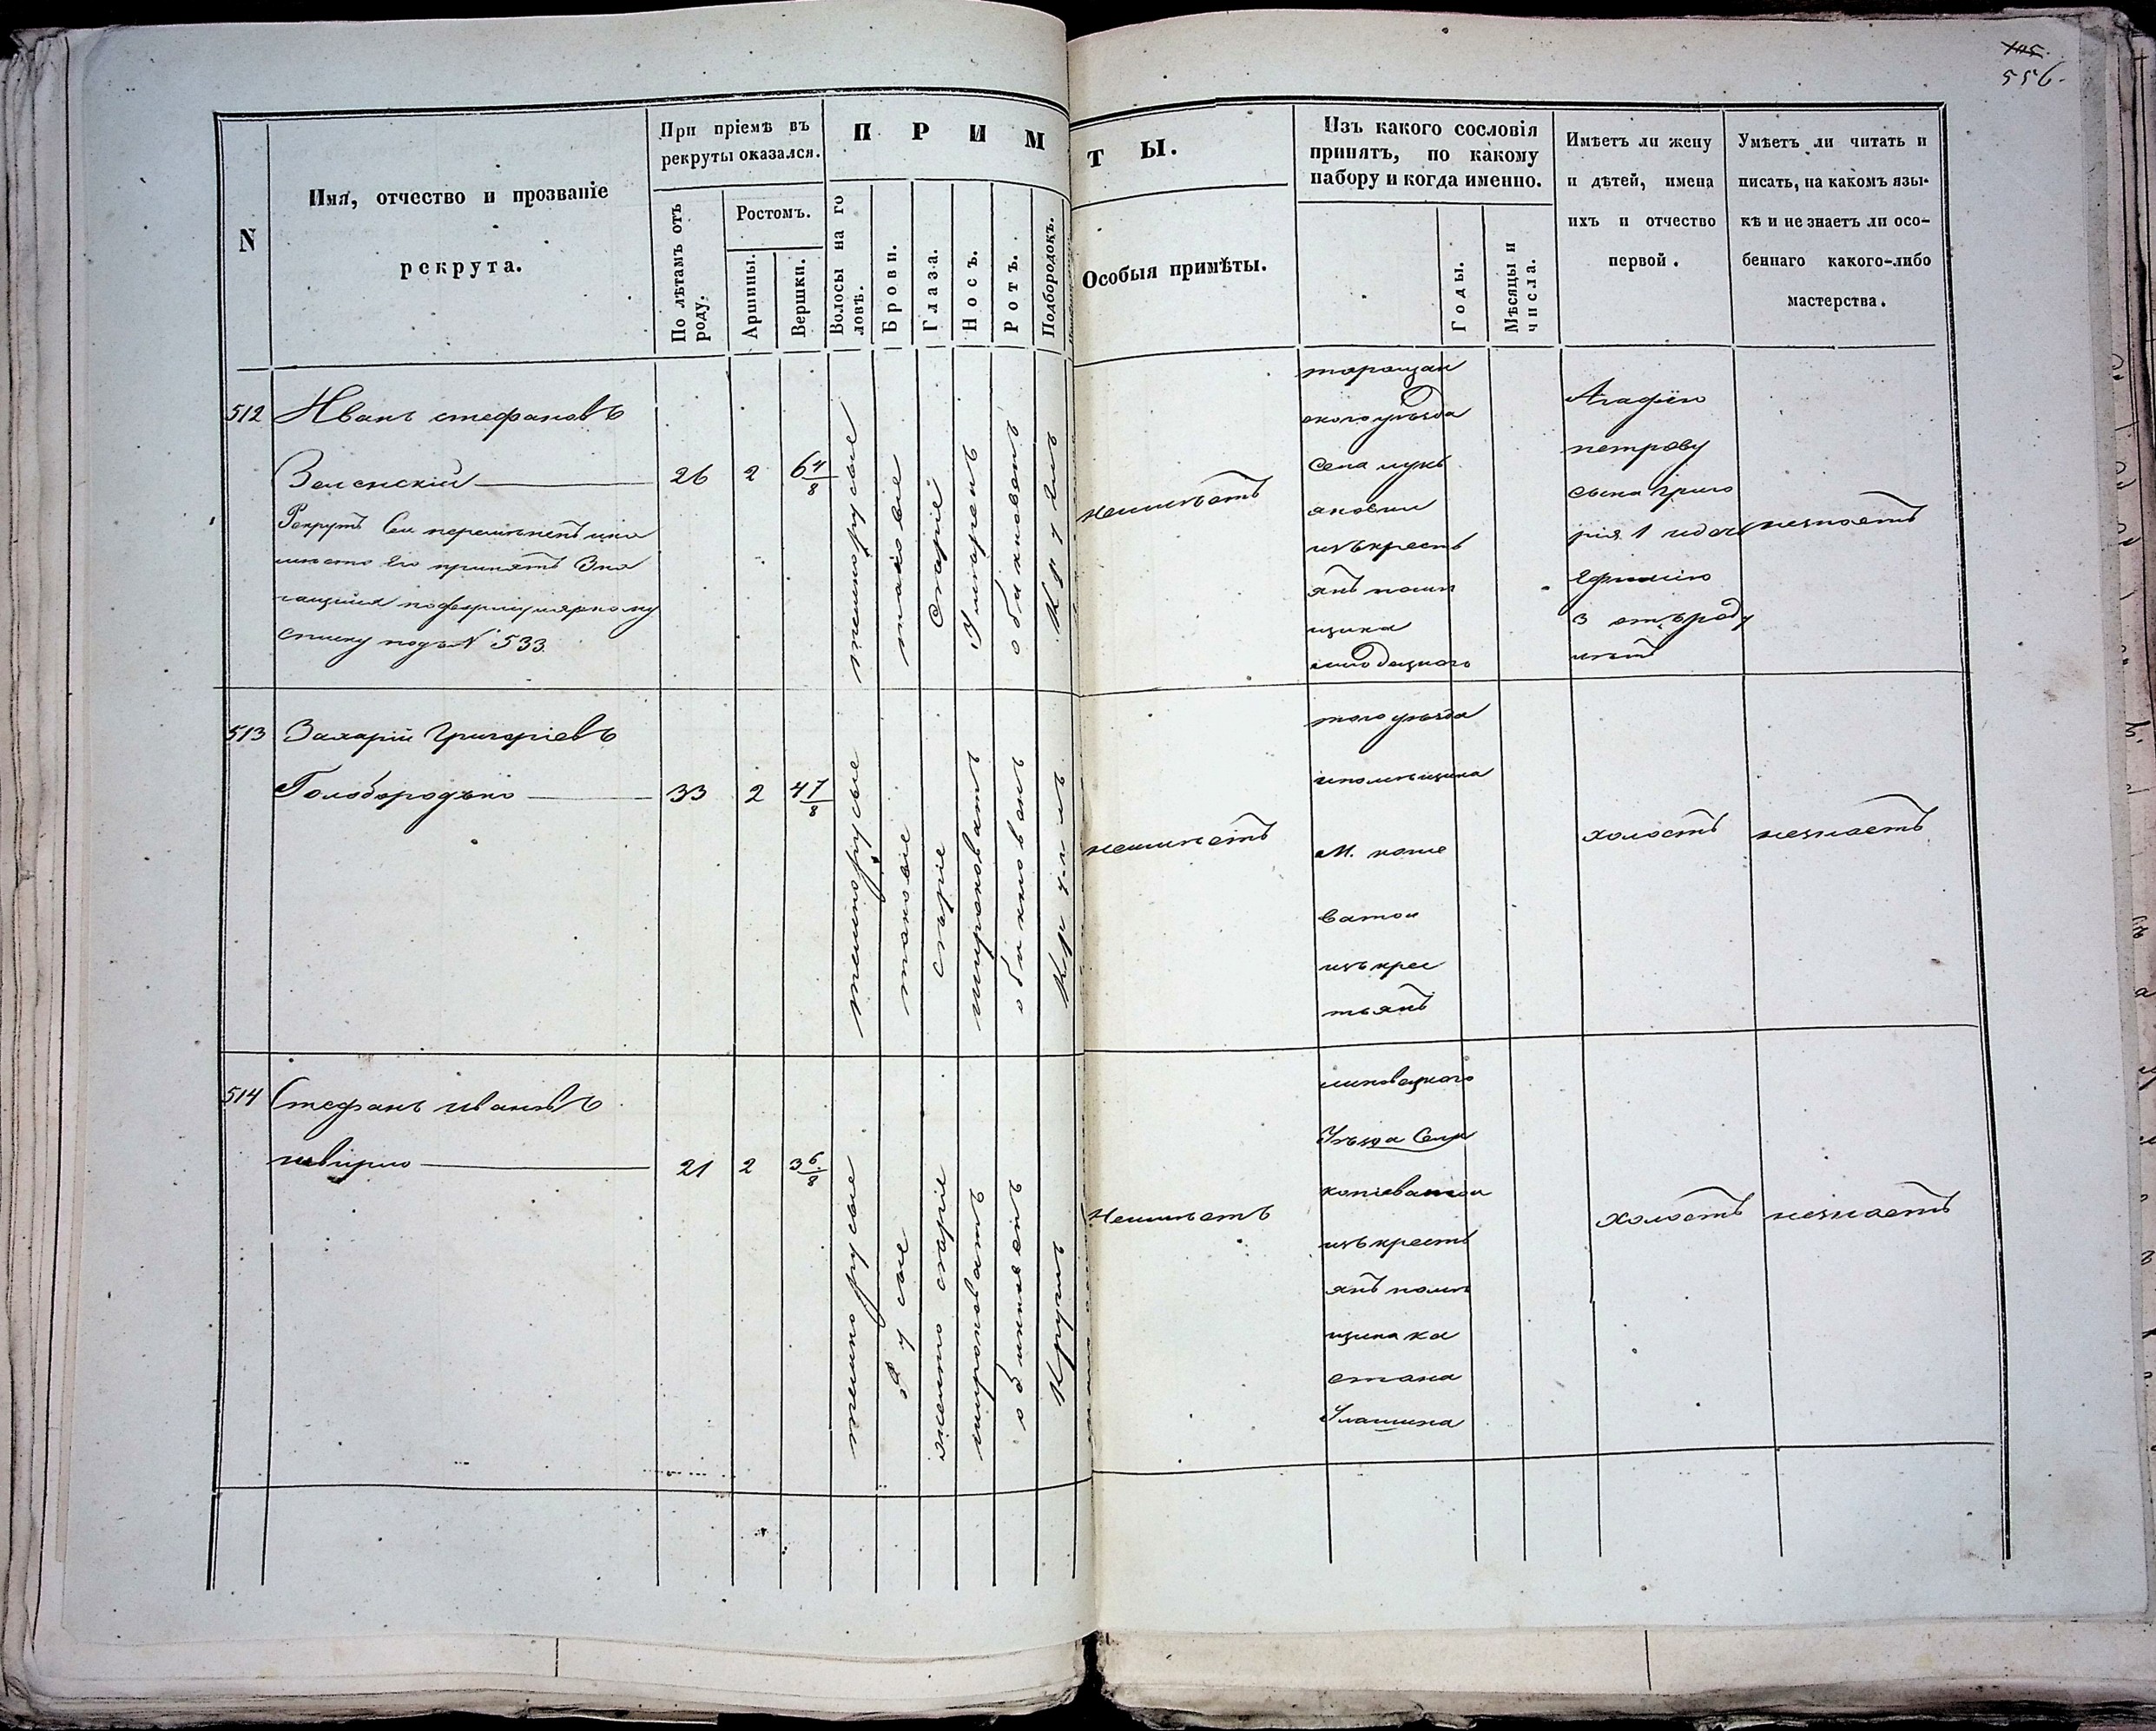 556.
N
Имя, отчество и прозваніе
рекрута.
При пріемѣ въ
рекруты оказался.
По лѣтамъ отъ
роду.
Ростомъ.
Аршины.
Вершки.
П Р И М
Волосы на го
ловѣ.
Брови.
Глаза.
Носъ.
Ротъ.
Подбородокъ.
Т Ы.
Особыя примѣты.
Изъ какого сословія
принятъ, по какому
набору и когда именно.
Годы.
Мѣсяцы и
числа.
Имѣетъ ли жену
и дѣтей, имена
ихъ и отчество
первой.
Умѣетъ ли читать и
писать, на какомъ язы-
кѣ и не знаетъ ли осо-
беннаго какого-либо
мастерства.
512
Иванъ стефановъ
Зеленскій
Рекрутъ Сей перемѣненъ и на
мѣсто Его принятъ Зна
чащійся по формулярному
списку подъ N 533.
26
2
6 4/8
темнорусые
таковіе
Сѣріе
Умѣренъ
обикновенъ
Круглъ
неимѣетъ
таращан
скаго уѣзда
Села лукь
яновки
изъ крестъ
янъ помѣ
щика
Агафію
петрову
сына Григо
рія 1 и дочь
Ефимію
3 отъ роду
лѣтъ
незнаетъ
513
Захарій Григоріевъ
Голобородько
33
2
4 7/8
темнорусые
таковіе
сѣріе
широковатъ
обикновенъ
Круглъ
неимѣетъ
того уѣзда
ипомѣщика
М. коше
ватой
изъ крес
тьянъ
холостъ
незнаетъ
514
Стефанъ ивановъ
21
2
3 6/8
темно русые
русые
желто сѣріе
широковатъ
обикновенъ
Круглъ
Неимѣетъ
липовецкаго
Уѣзда Села
копіеватои
изъ крестъ
янъ помѣ
щика ка
етана
холостъ
незнаетъ